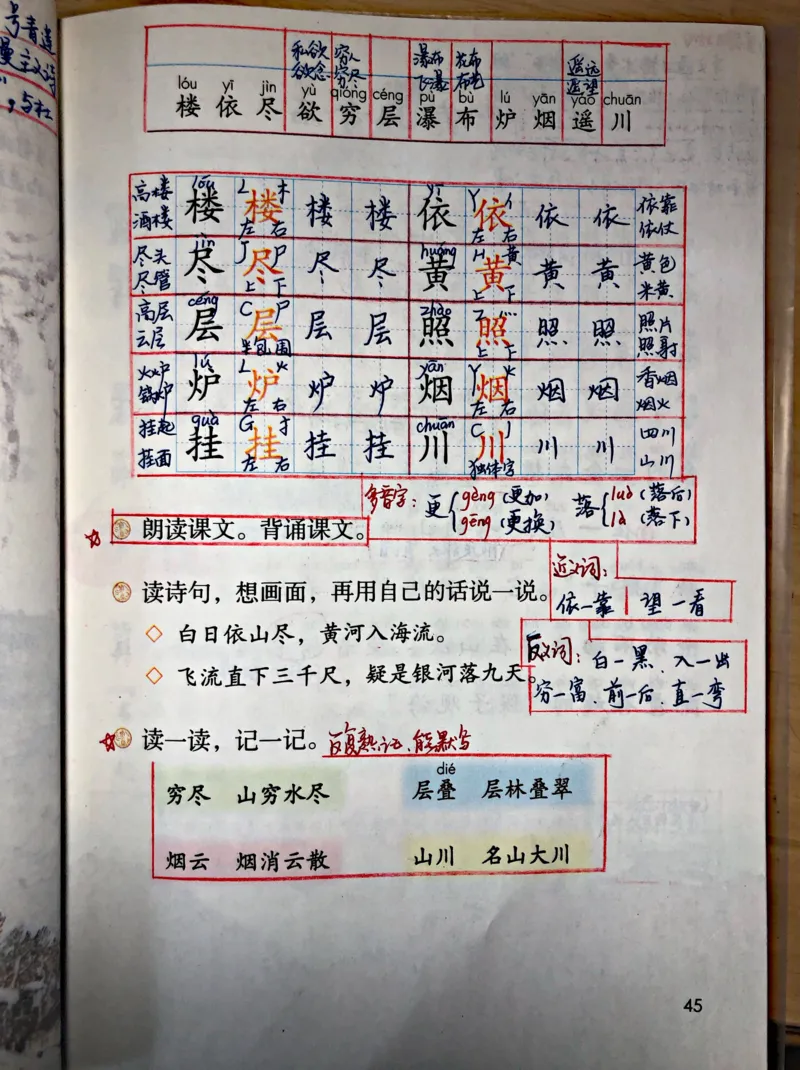 号青莲
漫主义诗
，与杜
私欲 穷人 瀑布 花布 遥远
欲念 穷尽 飞瀑 布艺 遥望
lóu yī jìn yù qióng céng pù bù lú yān yáo chuān
楼 依 尽 欲 穷 层 瀑 布 炉 烟 遥 川
高楼 lóu L 木 yī Y 亻 依靠
酒楼 楼 楼 楼 楼 依 依 依 依 依仗
左 右 左 右
尽头 jìn J 尸 huáng H 黄 黄色
尽管 尽 尽 尽 尽 黄 黄 黄 黄 米黄
上 下 上 下
高层 céng C 尸 zhào Z 灬 照片
云层 层 层 层 层 照 照 照 照 照射
半包围 上 下
火炉 lú L 火 yān Y 火 香烟
锅炉 炉 炉 炉 炉 烟 烟 烟 烟 烟火
左 右 左 右
挂起 guà G 扌 chuān C 丿 四川
挂面 挂 挂 挂 挂 川 川 川 川 山川
左 右 独体字
多音字： 更 gèng（更加） 落 luò（落后）
gēng（更换） là（落下）
朗读课文。背诵课文。
近义词：
读诗句，想画面，再用自己的话说一说。
依—靠 望—看
白日依山尽，黄河入海流。
反义词：白—黑、入—出
飞流直下三千尺，疑是银河落九天。
穷—富、前—后、直—弯
读一读，记一记。反复熟记、能默写
dié
穷尽 山穷水尽 层叠 层林叠翠
烟云 烟消云散 山川 名山大川
45